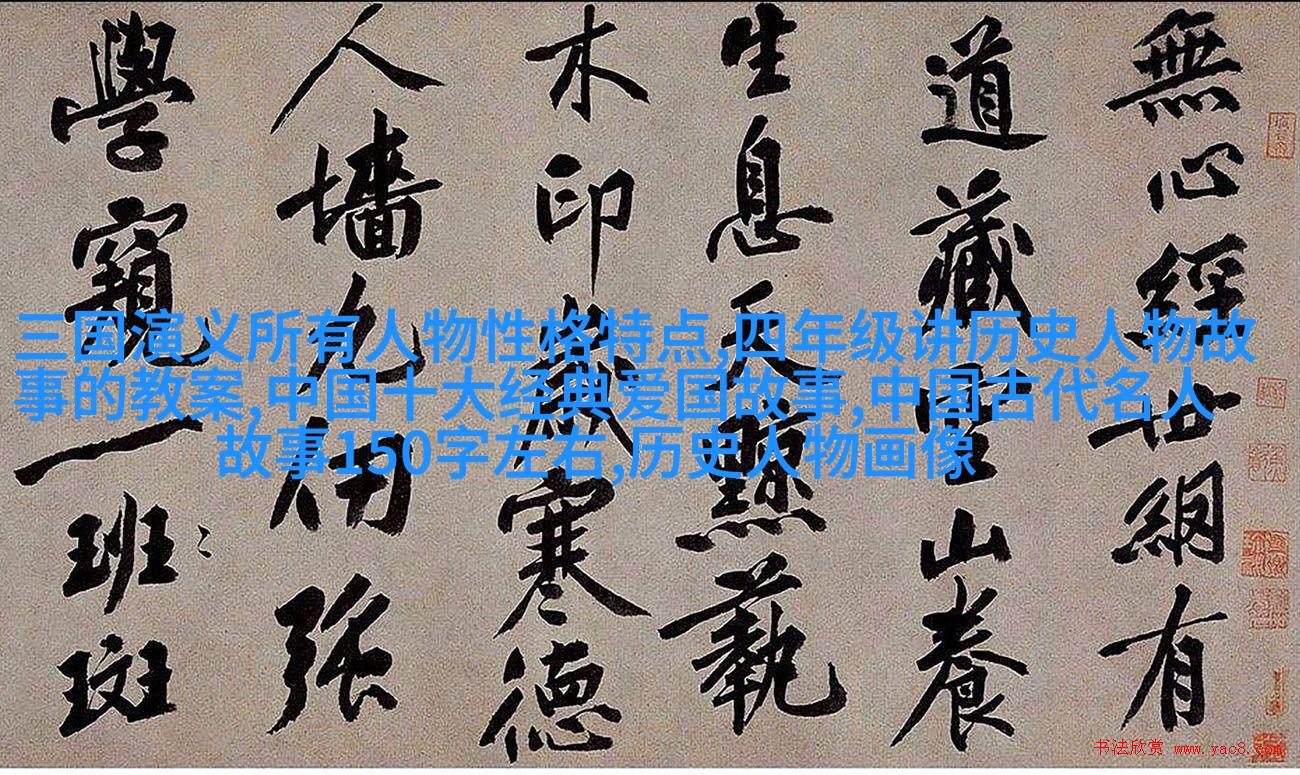 無心經世網有
道藏丘山養
生息天黥藝
木印歲寒德
人墻九仞强
學窺一班斑
三国演义所有人物性格特点,四年级讲历史人物故
事的教案,中国十大经典爱国故事,中国古代名人
故事150字左右,历史人物画像
书法欣赏 www.yac8.com